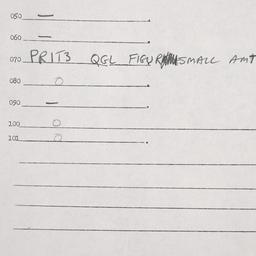 050 —
060 —
070 PRIT3 QGL FIGUR SMALL AMT
080 O
090 —
100 O
101 O